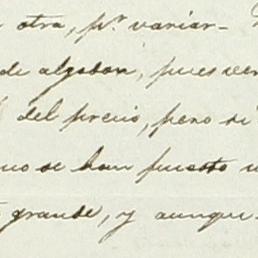 otra, pr. variar-
de algodon, pues ver
del precio, pero si
no se han puesto
grande, y aunque